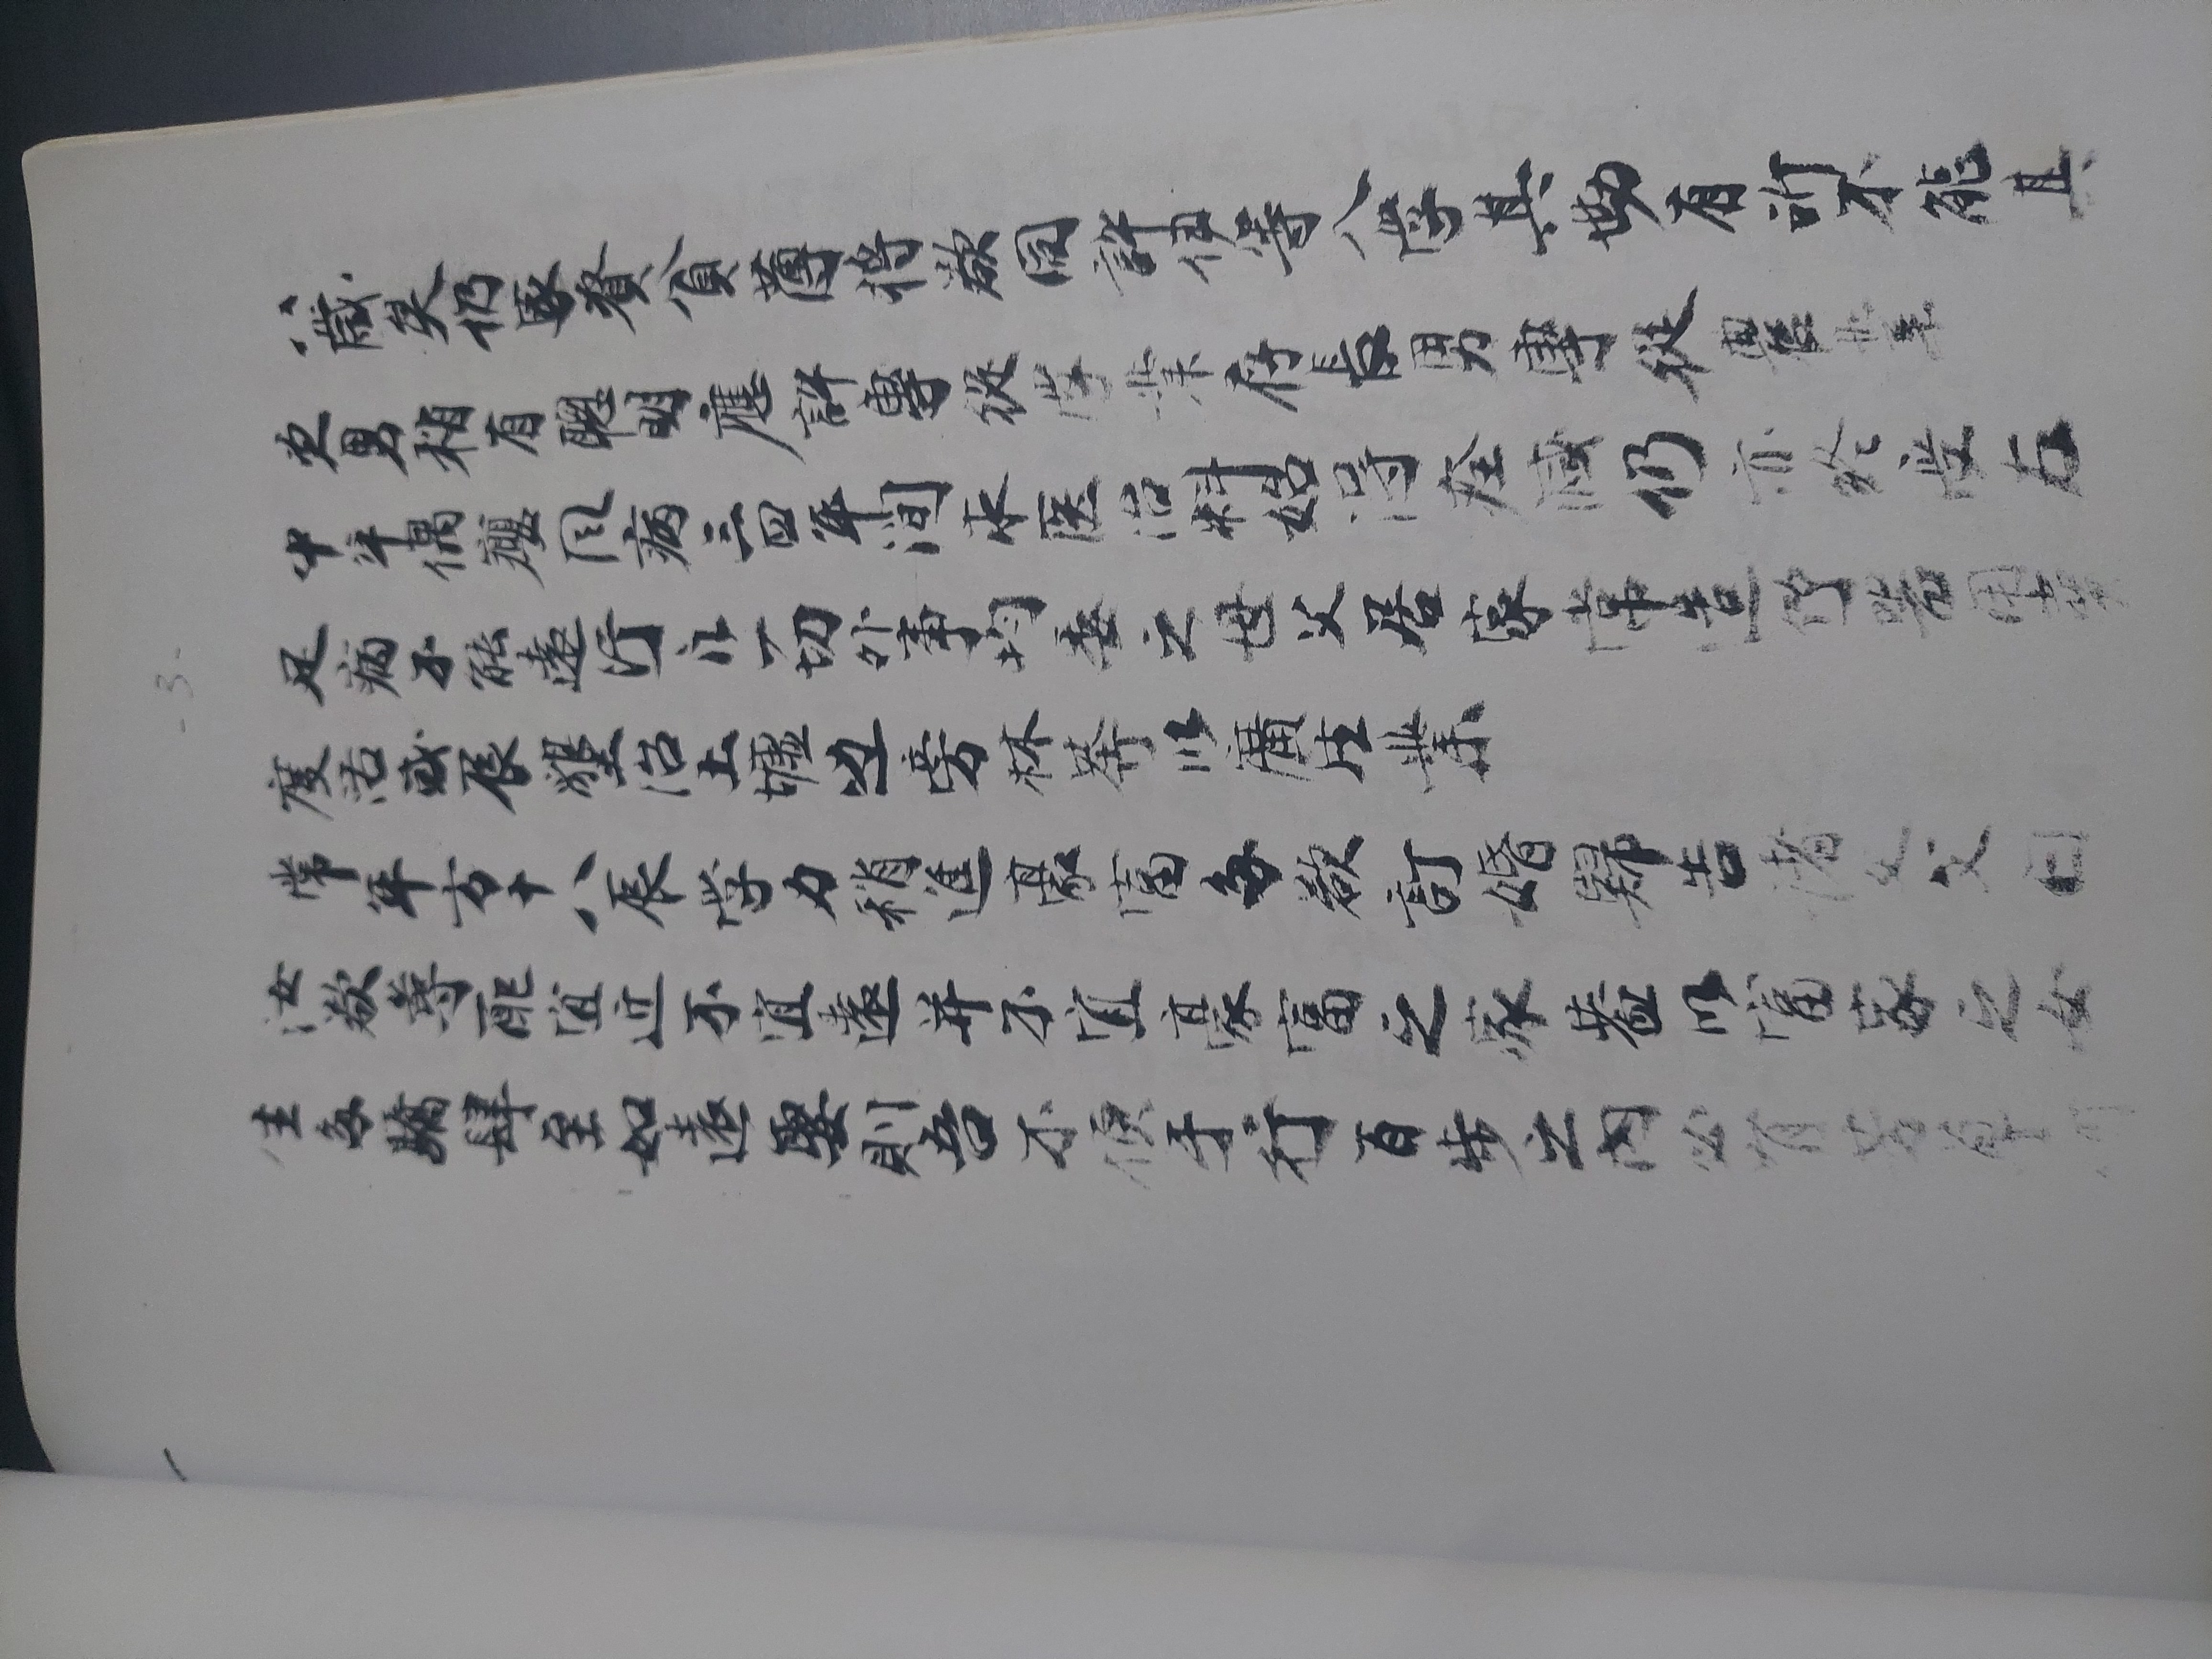 -3-
八歲矣仍家資貧薄将欲同許伊等入学其勢有所不能其
次男稍有聰明應許專從学業存長男專從農業
中年偶癮风病三四年间求医治料始得痊減仍亦終受右
足病不能遠行凡一切外事均委之母父居家常造作器用費
度活或辰墾治土墟边旁林莽以廣生業
常年方十八辰学力稍進豪富多欲訂婚歸告诸父父曰
汝欲尊配宜近不宜遠并不宜豪富之家蓋以富家之女
生多驕肆至如遠娶則吾不便于行百步之内必有芳草何